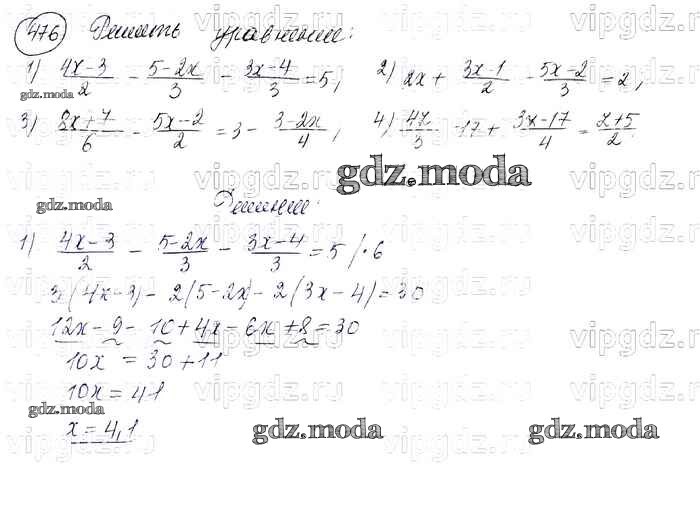 476 Решить уравнение:
1) (4x-3)/2 - (5-2x)/3 - (3x-4)/3 = 5, 2) 2x + (3x-1)/2 - (5x-2)/3 = 2,
gdz.moda
3) (8x+7)/6 - (5x-2)/2 = 3 - (3-2x)/4, 4) 4x/3 - 17 + (3x-17)/4 = (x+5)/2.
gdz.moda
gdz.moda
Решение:
1) (4x-3)/2 - (5-2x)/3 - (3x-4)/3 = 5 /·6
3(4x-3) - 2(5-2x) - 2(3x-4) = 30
12x - 9 - 10 + 4x - 6x + 8 = 30
10x = 30 + 11
10x = 41
gdz.moda
x = 4,1
gdz.moda
gdz.moda
vipgdz.ru